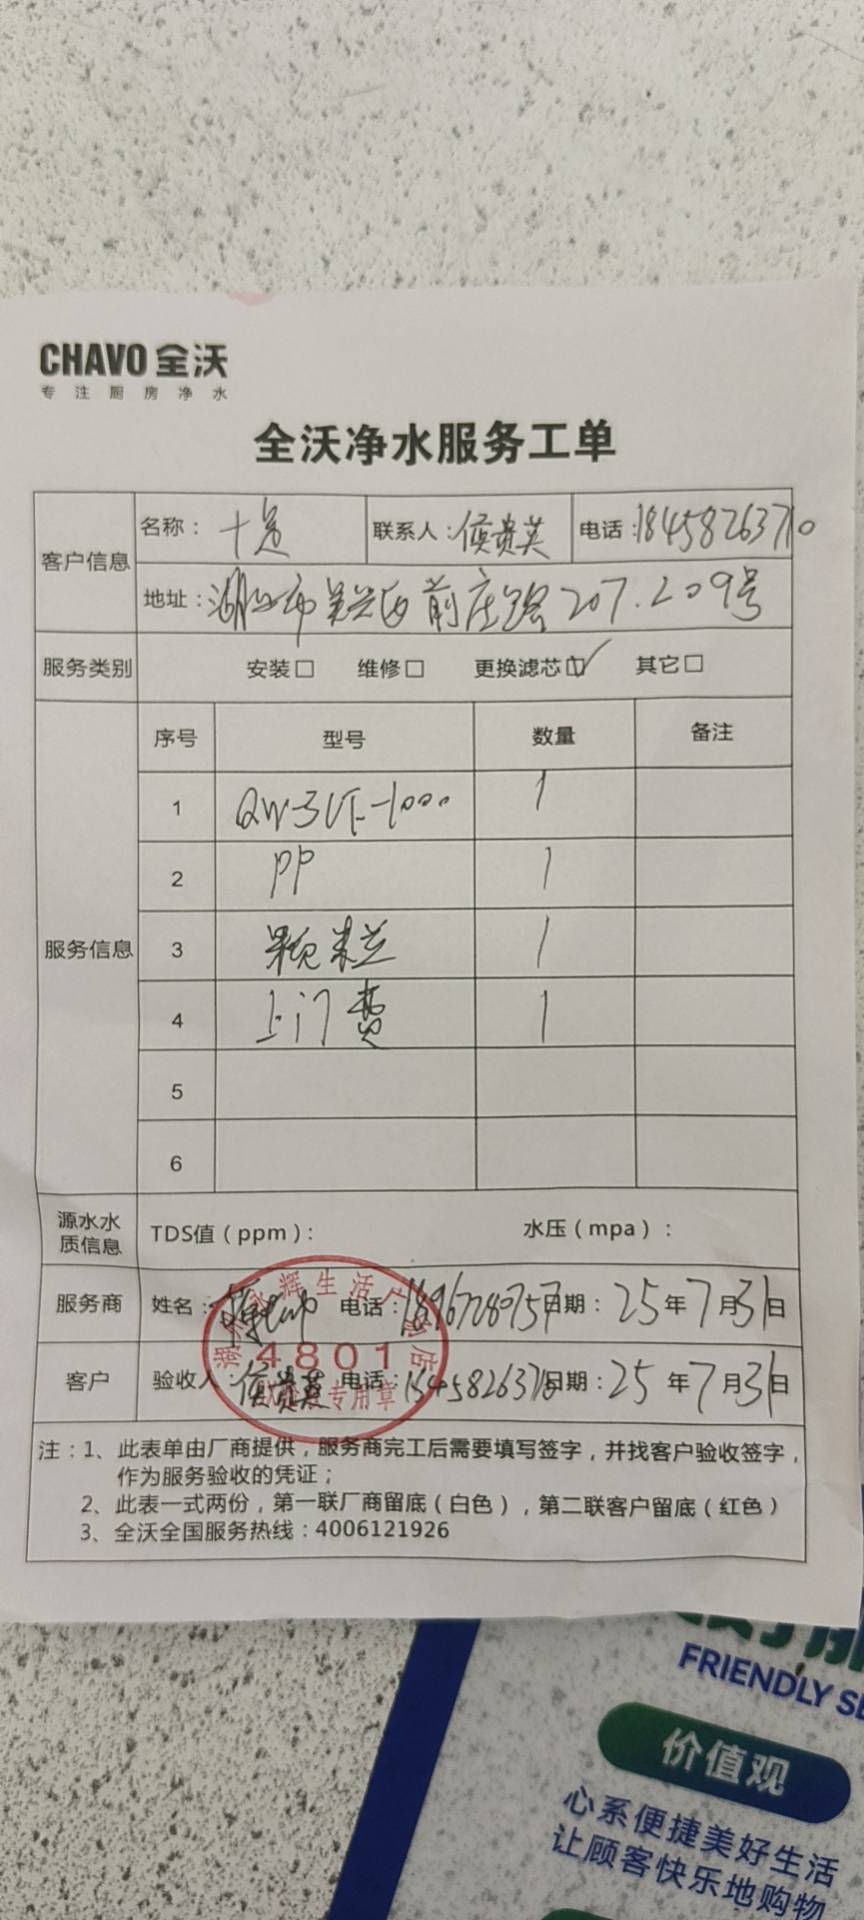 CHAVO 全沃
专注厨房净水
全沃净水服务工单
客户信息
名称： 十足 联系人：侯贵英 电话：18458263710
地址：湖州市吴兴区前庄路207.209号
服务类别 安装□ 维修□ 更换滤芯□✓ 其它□
服务信息
序号 型号 数量 备注
1 QW-3UF-1000 1
2 PP 1
3 颗粒 1
4 上门费 1
5
6
源水水质信息 TDS值（ppm）： 水压（mpa）：
服务商 姓名： 电话：18967280757 日期：25年7月31日
客户 验收人：侯贵英 电话：18458263710 日期：25年7月31日
永辉生活广
4801
专用章
注：1、此表单由厂商提供，服务商完工后需要填写签字，并找客户验收签字，
作为服务验收的凭证；
2、此表一式两份，第一联厂商留底（白色），第二联客户留底（红色）
3、全沃全国服务热线：4006121926
FRIENDLY SE
价值观
心系便捷美好生活
让顾客快乐地购物